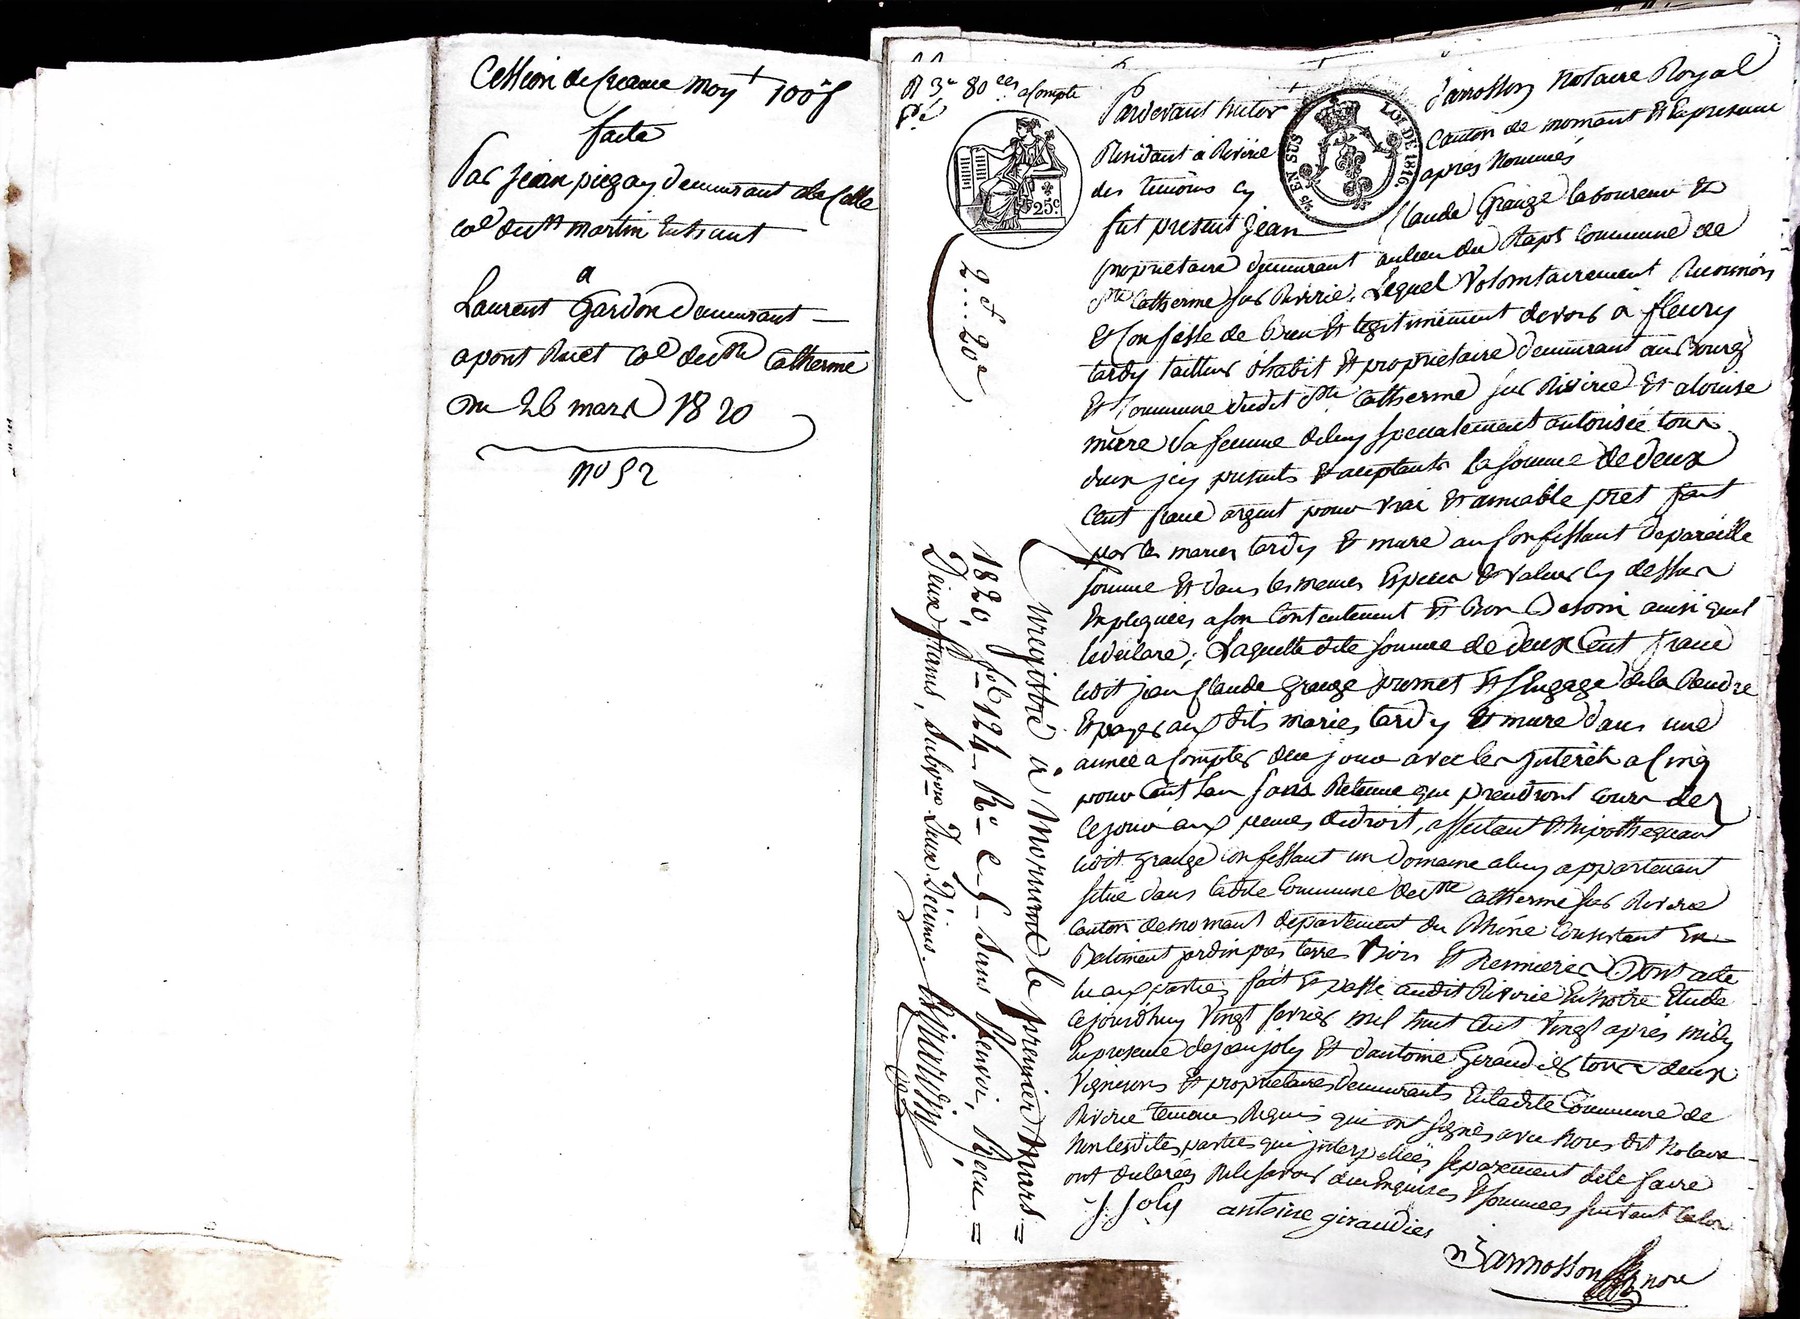 Cession de Creance moyt 100f
faite
Par jean piegay demurant de
coe de st martin
a
Laurent Gardon demurant
a pont Ruet coe de ste Catherine
du 26 mars 1820
no 52
R 3f 80ces a Compte
25c
EN SUS
LOI DE 1816.
Pardevant victor jannosson Notaire Royal
Residant a Riverie Canton de mornant Et En presence
des temoins cy apres Nommés
fut present jean Claude Grange laboureur Et
proprietaire demurant au lieu du Commune de
ste Catherine sur Riverie, Lequel Volontairement Reconnois
Et Confesse de bien Et legitimement devoir à fleury
tardy tailleur d'habit Et proprietaire demurant au Bourg
Et Commune dudit ste Catherine sur Riverie Et a louise
mure sa femme de luy specialement autorisée tous
deux jcy presents Et aceptants la somme de deux
Cent franc argent pour vrai Et amiable prêt fait
par les maries tardy Et mure au Confessant de pareille
somme Et dans les memes Especes Et valeur cy dessus
Expliquées a son Contentement Et bon besoin ainsi quil
le declare; Laquelle dite somme de deux Cent franc
ledit jean Claude grange promet Et sEngage de la Rendre
Et payer aux dits maries tardy Et mure dans une
année a Compter de ce jour avec les jnterêts a Cinq
pour Cent lan sans Retenue qui prendront cours des
ce jour aux peines de droit, affectant Et hipothequant
ledit grange confessant un domaine a luy appartenant
situé dans ladite Commune de ste Catherine sur Riverie
Canton de mornant departement du Rhône Consistant En
Batiment jardin pres terres Bois Et Dont acte
lu aux parties, fait Et passé audit Riverie En notre Etude
cejourdhuy vingt fevrier mil huit Cent vingt apres midy
En presence de jean joly Et dantoine Giraudier tous deux
Vignerons Et proprietaires demurants En ladite Commune de
Riverie temoins Requis qui ont signés avec Nous dit Notaire
Non lesdites parties qui jnterpellées separement de le faire
ont declarées ne le savoir de ce Enquises Et sommées suivant la loi
J joly antoine giraudier
Jannosson nore
2f 20c
Enregistré à Mornant le premier Mars
1820, fol 124 Ro C 5 sans Renvoi, Reçu
Deux francs, subvon Deux Décimes.